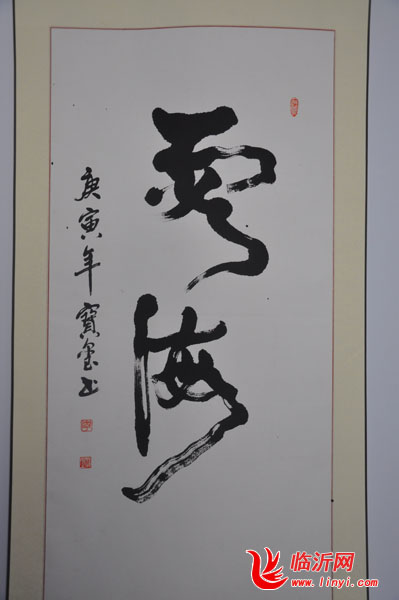 雲海
庚寅年寶書
临沂网
www.linyi.com